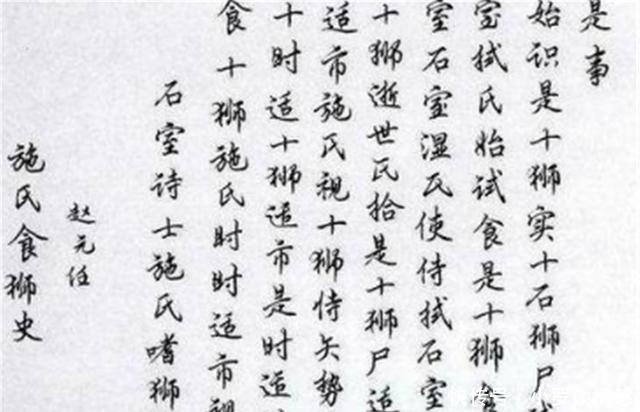 施氏食狮史
赵元任
石室诗士施氏嗜狮
食十狮施氏时时适市视
十时适十狮适市是时适
适市施氏视十狮恃矢势
十狮逝世氏拾是十狮尸适
室石室湿氏使侍拭石室
室拭氏始试食是十狮
始识是十狮实十石狮尸
是事